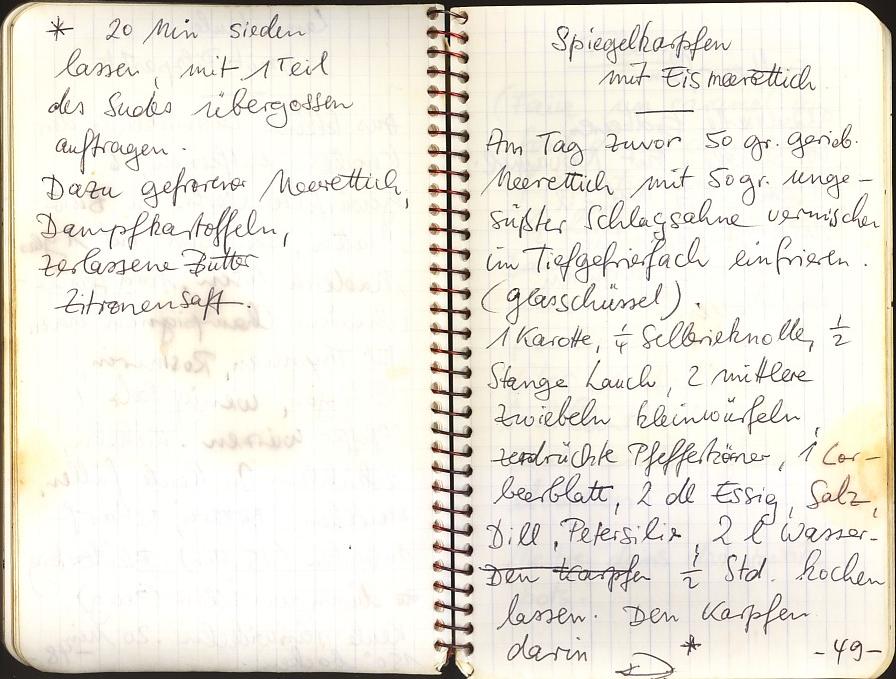 * 20 Min sieden
lassen, mit 1 Teil
des Sudes übergossen
auftragen.
Dazu gefrorener Meerettich,
Dampfkartoffeln,
zerlassene Butter
Zitronensaft.
Spiegelkarpfen
mit Eismeerettich
Am Tag zuvor 50 gr. gerieb.
Meerettich mit 50 gr. unge-
süßter Schlagsahne vermischen
im Tiefgefrierfach einfrieren.
(Glasschüssel).
1 Karotte, 1/4 Sellerieknolle, 1/2
Stange Lauch, 2 mittlere
Zwiebeln kleinwürfeln,
zerdrückte Pfefferkörner, 1 Lor-
beerblatt, 2 dl Essig, Salz,
Dill, Petersilie, 2 l Wasser.
Den Karpfen 1/2 Std. kochen
lassen. Den Karpfen
darin *
-49-